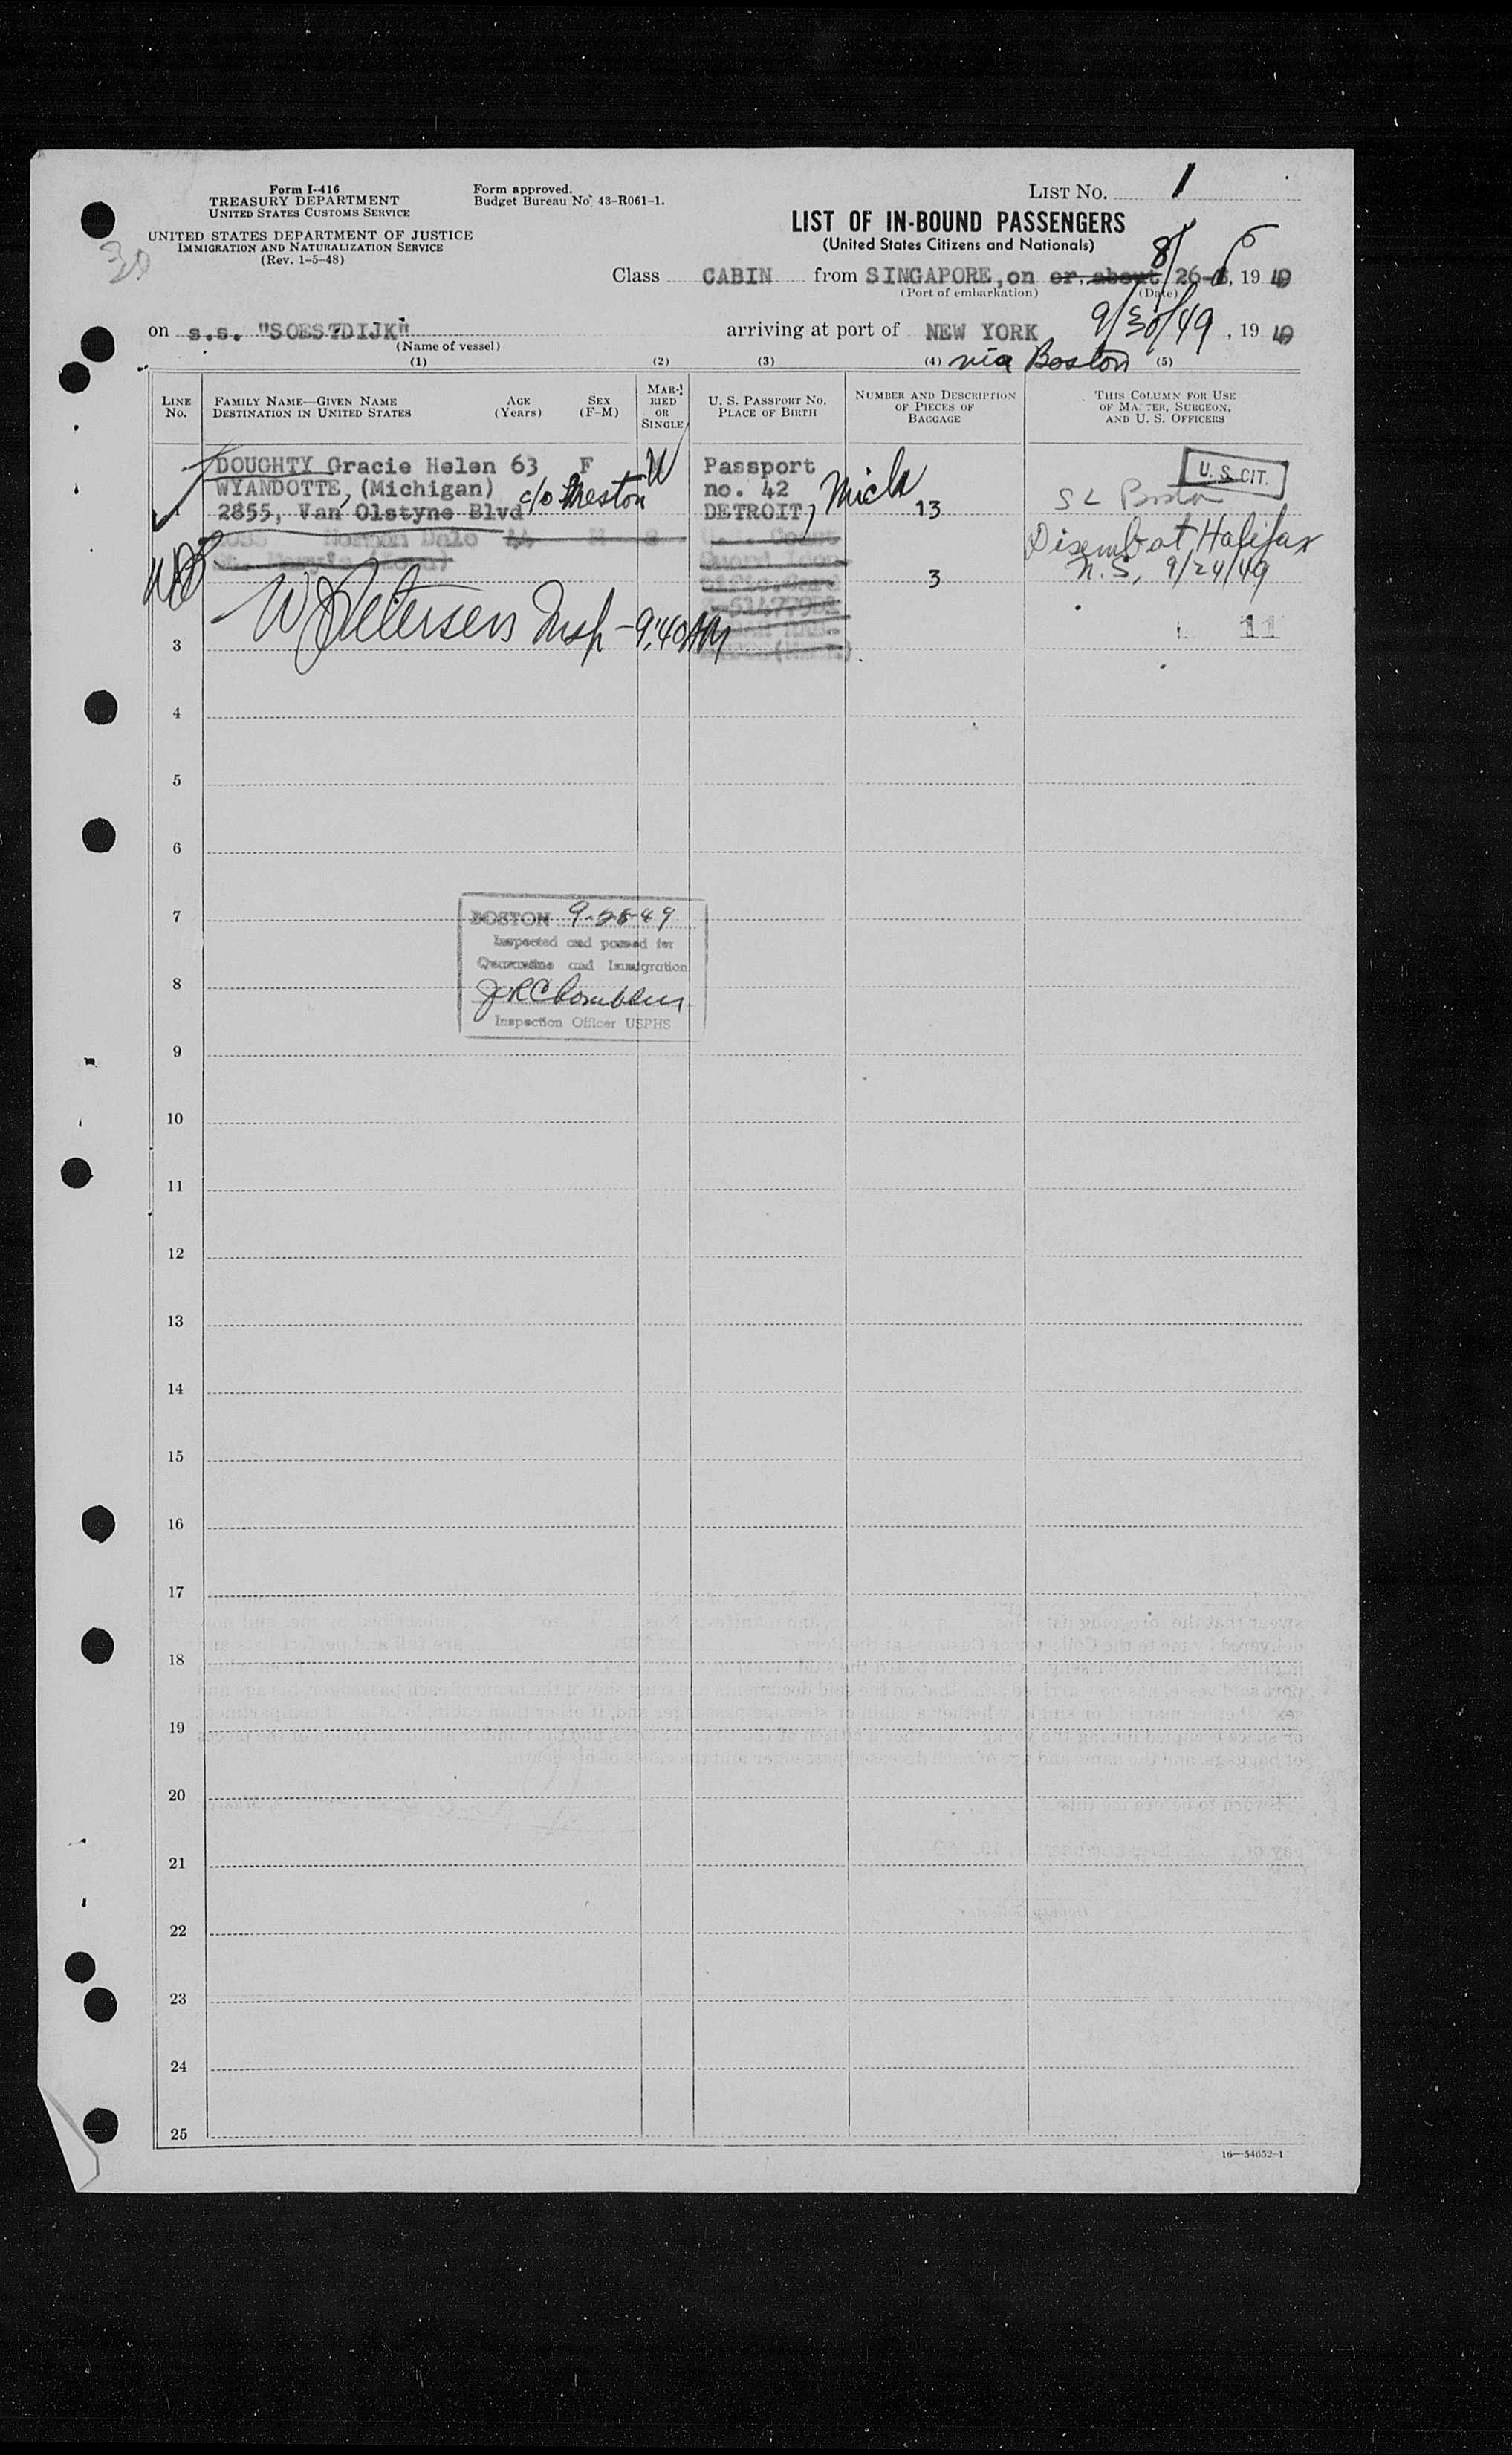 Form I-416
TREASURY DEPARTMENT
UNITED STATES CUSTOMS SERVICE
UNITED STATES DEPARTMENT OF JUSTICE
IMMIGRATION AND NATURALIZATION SERVICE
(Rev. 1-5-48)
Form approved.
Budget Bureau No. 43-R061-1.
LIST NO. 1
LIST OF IN-BOUND PASSENGERS
(United States Citizens and Nationals)
Class CABIN from SINGAPORE, on or about 8/ 26 , 19 49
(Port of embarkation) (Date)
on s.s. "SOESTDIJK" arriving at port of NEW YORK 9/30/49 , 19 49
(Name of vessel)
via Boston
(1) (2) (3) (4) (5)
LINE NO.
FAMILY NAME—GIVEN NAME DESTINATION IN UNITED STATES
AGE (Years)
SEX (F-M)
MARRIED OR SINGLE
U. S. PASSPORT NO. PLACE OF BIRTH
NUMBER AND DESCRIPTION OF PIECES OF BAGGAGE
THIS COLUMN FOR USE OF MASTER, SURGEON, AND U. S. OFFICERS
DOUGHTY Gracie Helen 63 F W Passport U. S. CIT.
WYANDOTTE, (Michigan) c/o no. 42
2855, Van Olstyne Blvd DETROIT, Mich 13 S L Boston
Norman Dale M S U.S. Coast
Guard Iden
Disemb at Halifax
N.S, 9/24/49
3
W Petersen Insp - 9:40 AM
11
3
4
5
6
7
BOSTON 9-28-49
Inspected and passed for
Quarantine and Immigration
Inspection Officer USPHS
8
9
10
11
12
13
14
15
16
17
18
19
20
21
22
23
24
25
16—54652-1